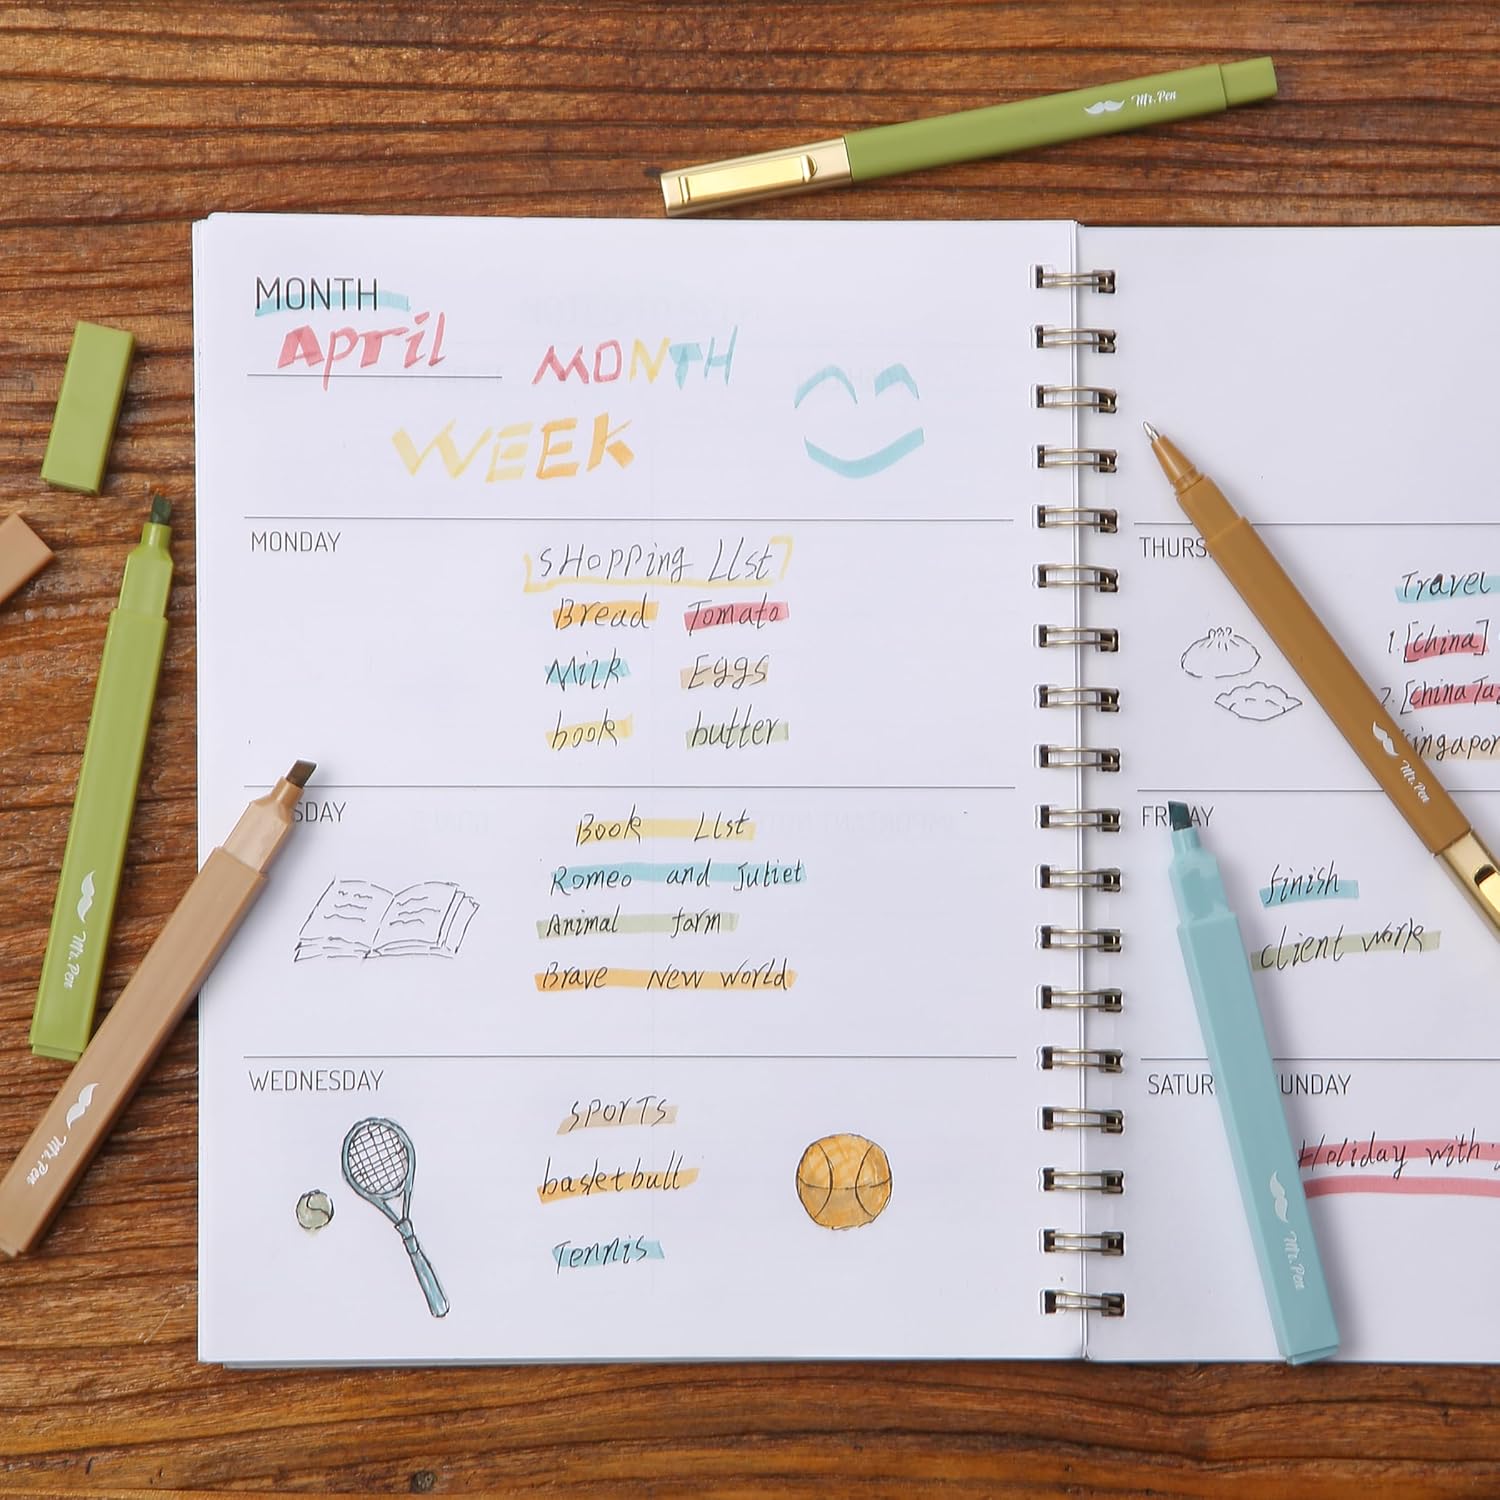 Mr. Pen
MONTH
April
MONTH
WEEK
MONDAY
sHopping LIst
Bread Tomato
Milk Eggs
book butter
SDAY
Book LIst
Romeo and Juliet
Animal farm
Brave New world
WEDNESDAY
sporTs
basketball
Tennis
THURS
Travel
1. [China]
2. [China Ta
singapor
FRIDAY
finish
client work
SATUR UNDAY
Holiday with
Mr. Pen
Mr. Pen
Mr. Pen
Mr. Pen